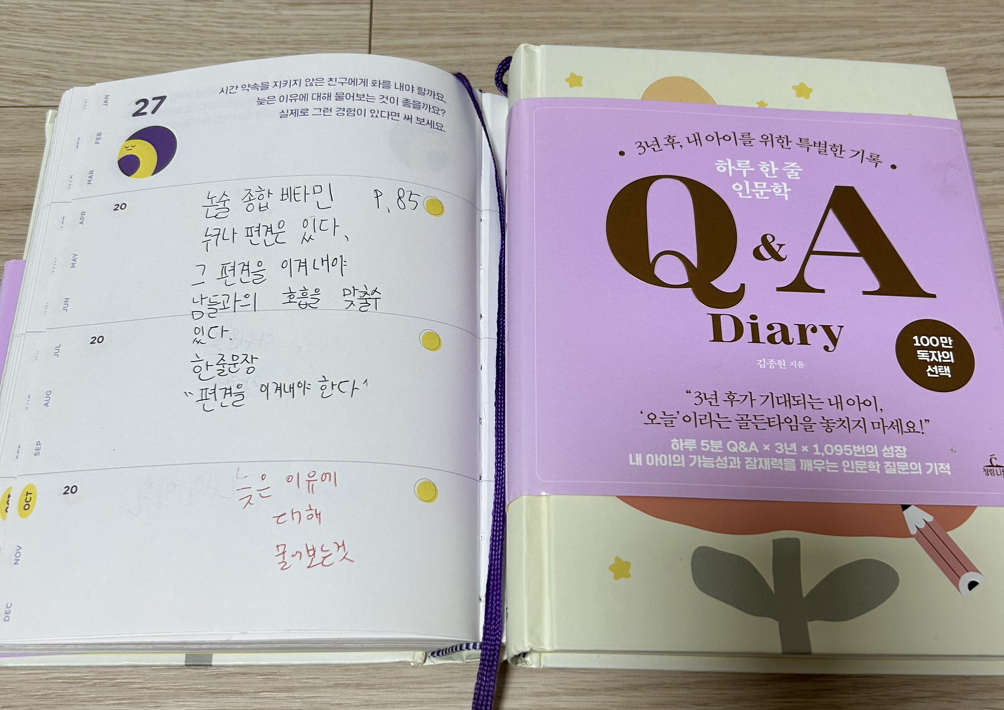 27
시간 약속을 지키지 않은 친구에게 화를 내야 할까요,
늦은 이유에 대해 물어보는 것이 좋을까요?
실제로 그런 경험이 있다면 써 보세요.
JAN
FEB
MAR
APR
MAY
JUN
JUL
AUG
SEP
OCT
NOV
DEC
20
논술 종합 비타민 P.85
누구나 편견은 있다,
그 편견을 이겨내야
남들과의 호흡을 맞출수
있다.
20
한줄문장
"편견을 이겨내야 한다"
20
늦은 이유에
대해
물어보는것
3년 후, 내 아이를 위한 특별한 기록
하루 한 줄
인문학
Q & A
Diary
김종원 지음
100만
독자의
선택
“3년 후가 기대되는 내 아이,
‘오늘’이라는 골든타임을 놓치지 마세요!”
하루 5분 Q&A × 3년 × 1,095번의 성장
내 아이의 가능성과 잠재력을 깨우는 인문학 질문의 기적